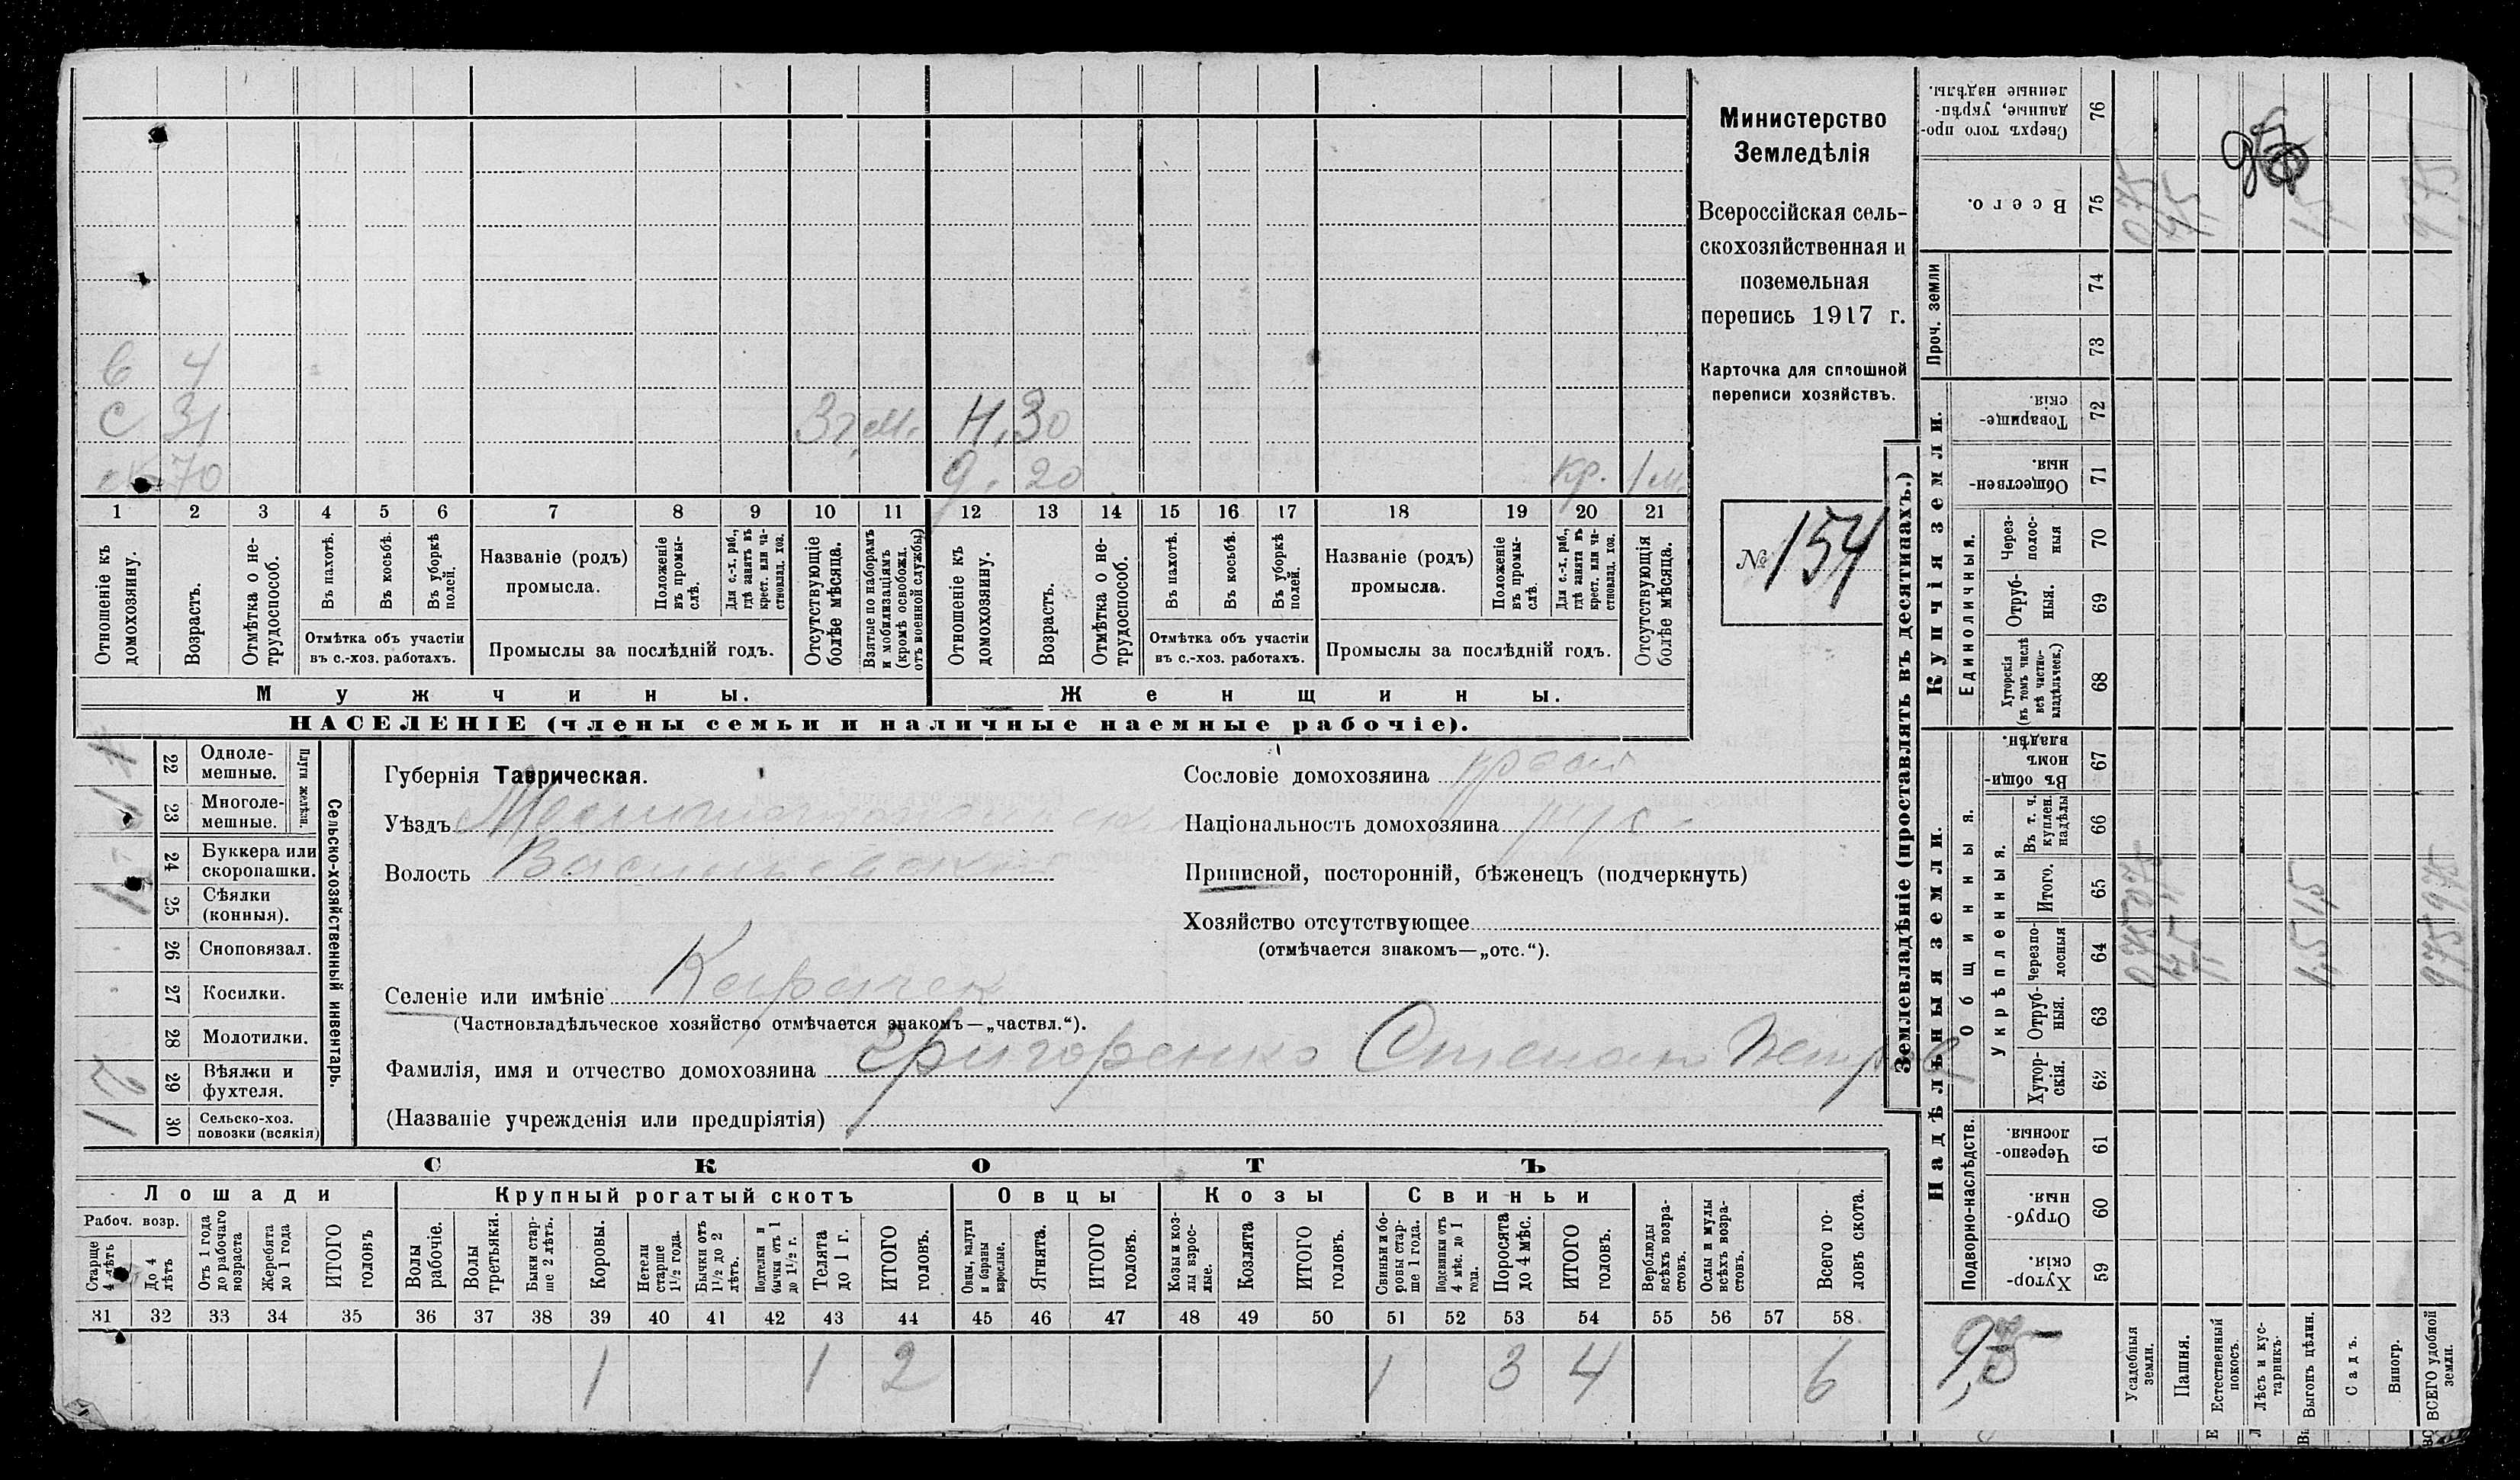 Министерство
Земледѣлія
Всероссійская сель-
скохозяйственная и
поземельная
перепись 1917 г.
Карточка для сплошной
переписи хозяйствъ.
№ 154
в 4
с 31 3 г. м. Н. 30
70 д. 20 кр. 1 м.
1 2 3 4 5 6 7 8 9 10 11 12 13 14 15 16 17 18 19 20 21
Отношеніе къ домохозяину.
Возрастъ.
Отмѣтка о не-трудоспособ.
Въ пахотѣ.
Въ косьбѣ.
Въ уборкѣ полей.
Отмѣтка объ участіи
въ с.-хоз. работахъ.
Названіе (родъ)
промысла.
Положеніе въ промы-слѣ.
Для с.-х. раб., гдѣ занятъ въ крест. или ча-стновлад. хоз.
Промыслы за послѣдній годъ.
Отсутствующіе болѣе мѣсяца.
Взятые по наборамъ и мобилизаціямъ (кромѣ освобожд. отъ военной службы)
Отношеніе къ домохозяину.
Возрастъ.
Отмѣтка о не-трудоспособ.
Въ пахотѣ.
Въ косьбѣ.
Въ уборкѣ полей.
Отмѣтка объ участіи
въ с.-хоз. работахъ.
Названіе (родъ)
промысла.
Положеніе въ промы-слѣ.
Для с.-х. раб., гдѣ занята въ крест. или ча-стновлад. хоз.
Промыслы за послѣдній годъ.
Отсутствующія болѣе мѣсяца.
Мужчины. Женщины.
НАСЕЛЕНІЕ (члены семьи и наличные наемные рабочіе).
Сельско-хозяйственный инвентарь.
Плуги желѣзн.
22 Одноле-мешные.
23 Многоле-мешные.
24 Буккера или скоропашки.
25 Сѣялки (конныя).
26 Сноповязал.
27 Косилки.
28 Молотилки.
29 Вѣялки и фухтеля.
30 Сельско-хоз. повозки (всякія)
Губернія Таврическая.
Уѣздъ
Волость Васильевская
Сословіе домохозяина
Національность домохозяина рус.
Приписной, посторонній, бѣженецъ (подчеркнуть)
Хозяйство отсутствующее
(отмѣчается знакомъ—„отс.“).
Селеніе или имѣніе
(Частновладѣльческое хозяйство отмѣчается знакомъ—„частвл.“).
Фамилія, имя и отчество домохозяина Григоренко Степан Петр
(Названіе учрежденія или предпріятія)
СКОТЪ
Лошади Крупный рогатый скотъ Овцы Козы Свиньи
Рабоч. возр.
Старше 4 лѣтъ
До 4 лѣтъ
Отъ 1 года до рабочаго возраста
Жеребята до 1 года
ИТОГО головъ
Волы рабочіе.
Волы третьяки.
Быки стар-ше 2 лѣтъ.
Коровы.
Нетели старше 1½ года.
Бычки отъ 1½ до 2 лѣтъ.
Подтелки и бычки отъ 1 до 1½ г.
Телята до 1 г.
ИТОГО головъ.
Овцы, валухи и бараны взрослые.
Ягнята.
ИТОГО головъ.
Козы и коз-лы взрос-лые.
Козлята
ИТОГО головъ.
Свиньи и бо-ровы стар-ше 1 года.
Подсвинки отъ 4 мѣс. до 1 года.
Поросята до 4 мѣс.
ИТОГО головъ.
Верблюды всѣхъ возра-стовъ.
Ослы и мулы всѣхъ возра-стовъ.
Всего го-ловъ скота.
31 32 33 34 35 36 37 38 39 40 41 42 43 44 45 46 47 48 49 50 51 52 53 54 55 56 57 58
1 1 2 1 3 4 6
Землевладѣніе (проставлять въ десятинахъ.)
Надѣльныя земли.
Купчія земли.
Проч. земли
Подворно-наслѣдств.
Общинныя.
Укрѣпленныя.
Единоличныя.
Сверхъ того про-данные, укрѣп-ленные надѣлы. 76
Всего. 75
74
73
Товарище-скія. 72
Обществен-ныя. 71
Через-полос-ныя 70
Отруб-ныя. 69
Хуторскія (въ томъ числѣ всѣ частно-владѣльческ.) 68
Въ общи-номъ владѣн. 67
Въ т. ч. куплен. надѣлы 66
Итого. 65
Черезпо-лосныя 64
Отруб-ныя. 63
Хутор-скія. 62
Черезпо-лосныя 61
Отруб-ныя. 60
Хутор-скія 59
Усадебныя земли.
Пашня.
Естественный покосъ.
Лѣсъ и кус-тарникъ.
Выгонъ цѣлин.
Садъ.
Виногр.
ВСЕГО удобной земли.
0,75 0,75 0,75
1,5 1,5 1,5
9,75 9,75 9,75